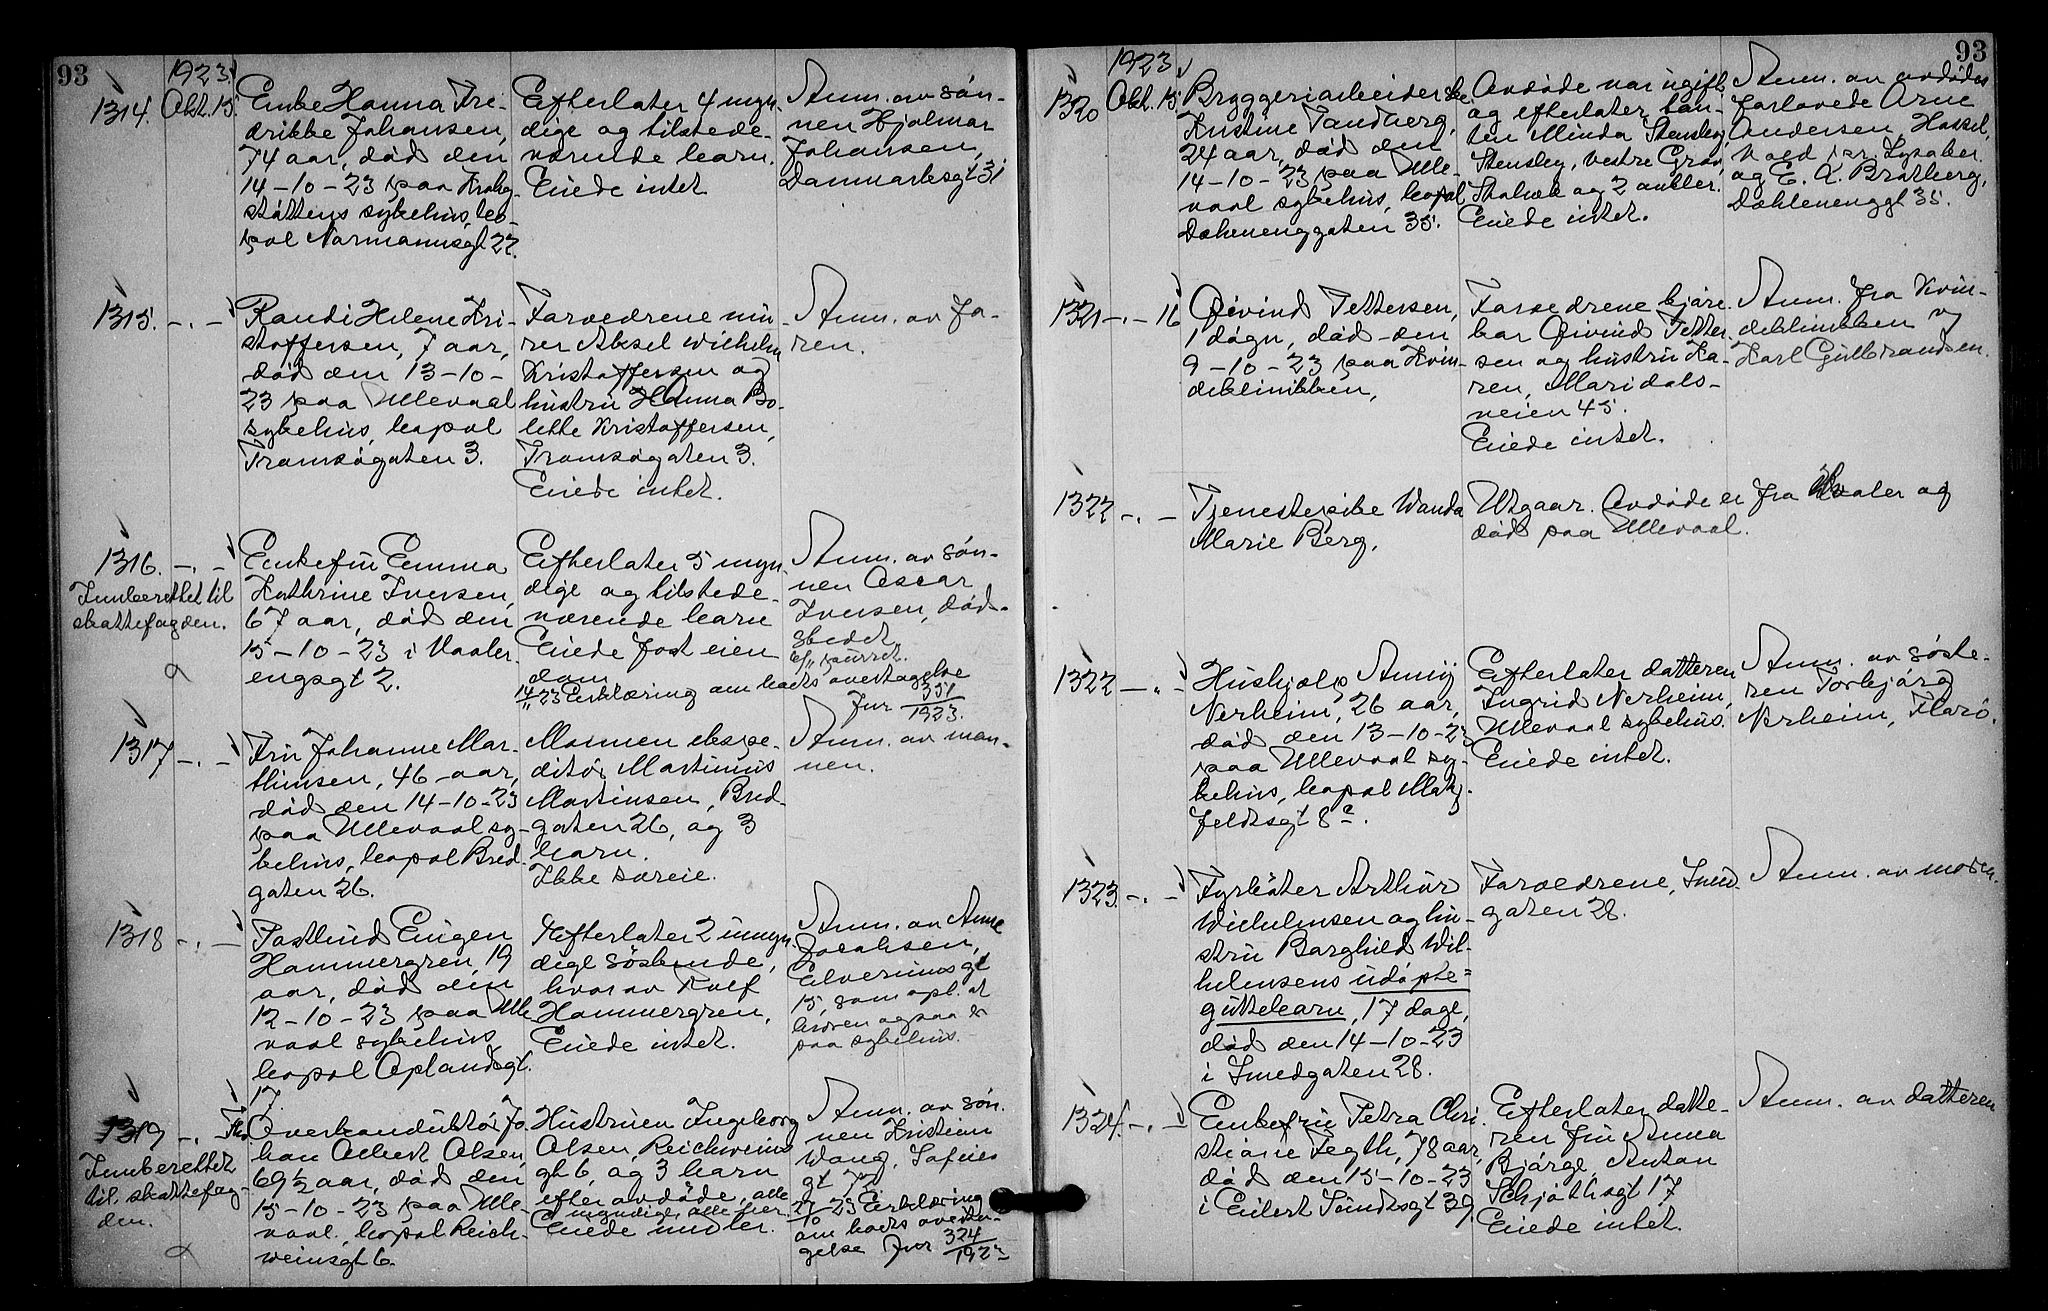 93
1923
1314. Okt. 15.
Enke Hanna Fre-
drikke Johansen,
74 aar, død den
14-10-23 paa Krohg-
støttens sykehus, bo-
pæl Normannsgt 22.
Efterlater 4 myn-
dige og tilstede-
værende barn.
Eiede intet
Anm. av søn-
nen Hjalmar
Johansen,
Danmarksgt 31
1315. -.-
Randi Helene Kri-
stoffersen, 7 aar,
død den 13-10-
23 paa Ullevaal
sykehus, bopæl
Tromsøgaten 3.
Forældrene mu-
rer Aksel Wilhelm
Kristoffersen og
hustru Hanna Bo-
lette Kristoffersen,
Tromsøgaten 3.
Eiede intet.
Anm. av fa-
ren.
1316. -.-
Innberettet til
skattefogden.
Enkefru Emma
Kathrine Iversen,
67 aar, død den
15-10-23 i Vaaler-
engsgt 2.
Efterlater 5 myn-
dige og tilstede-
værende barn
Eiede fast eien
dom
Anm. av søn-
nen Oscar
Iversen, død-
sbedet
14/11 23 Erklæring om boets overtagelse
Jnr 351/1923.
1317 -.-
Fru Johanne Mar-
thinsen, 46 aar,
død den 14-10-23
paa Ullevaal sy-
kehus, bopæl Bred-
gaten 26.
Mannen ekspe-
ditør Martinius
Martinsen, Bred-
gaten 26, og 3
barn.
Ikke særeie.
Anm. av man-
nen.
1318 -.-
Postbud Eugen
Hammergren, 19
aar, død den
12-10-23 paa Ulle
vaal sykehus
bopæl Oplandsgt.
17.
Efterlater 2 umyn-
dige søskende,
hvorav Rolf
Hammergren.
Eiede intet.
Anm. av Anne
Jacobsen,
Elverumsgt
15, som opl. at
broren ogsaa er
paa sykehus.
1319 -.-
Innberettet
til skattefog-
den.
Overkonduktør Jo-
han Albert Olsen,
69½ aar, død den
15-10-23 paa Ulle-
vaal, bopæl Reich-
weinsgt 6.
Hustruen Ingeborg
Olsen, Reichweins
gt 6, og 3 barn
efter avdøde, alle
myndige, alle her.
Eiede midler.
Anm. av søn-
nen Kristian
Wang, Sofies
gt 72
/10 23 Erklæring
om boets overta-
gelse Jnr 324/1923
93
1923
1320 Okt. 15
Bryggeriarbeiderske
Kristine Tandberg,
24 aar, død den
14-10-23 paa Ulle-
vaal sykehus, bopæl
Dælenenggaten 35.
Avdøde var ugift
og efterlater tan-
ten Minda Stensby,
Stensby, vestre Gran,
Skabæk og 2 onkler.
Eiede intet.
Anm. av avdødes
forlovede Arne
Andersen, Hassel,
Vold pr. Lysaker
og E. K. Bratberg,
Dælenenggt 35.
1321 -.- 16
Øivind Pettersen,
1 døgn, død den
9-10-23 paa Kvin-
deklinikken,
Forældrene kjøre
kar Øivind Petter-
sen og hustru Ka-
ren, Maridals-
veien 45.
Eiede intet.
Anm. fra Kvin-
deklinikken og
Karl Gulbrandsen.
1322 -.-
Tjenestepike Wanda
Marie Berg,
Utgaar. Avdøde er fra Hvaler og
død paa Ullevaal.
1322 -.-
Hushjælp Anny
Nerheim, 26 aar,
død den 13-10-23
paa Ullevaal sy-
kehus, bopæl Maltz-
feldtsgt 8
Efterlater datteren
Ingrid Nerheim,
Ullevaal sykehus
Eiede intet.
Anm. av søste-
ren Torbjørg
Nerheim, Florø.
1323. -.-
Fyrbøter Arthur
Wilhelmsen og hu-
stru Borghild Wil-
helmsens udøpte
guttebarn, 17 dage,
død den 14-10-23
i Smedgaten 28.
Forældrene, Smed-
gaten 28.
Anm. av moren.
1324. -.-
Enkefru Petra Chri-
stiane Tegth, 78 aar,
død den 15-10-23
i Eilert Sundtsgt 39
Efterlater datte-
ren fru Anna
Bjørge, Anton
Schjøthsgt 17
Eiede intet.
Anm. av datteren